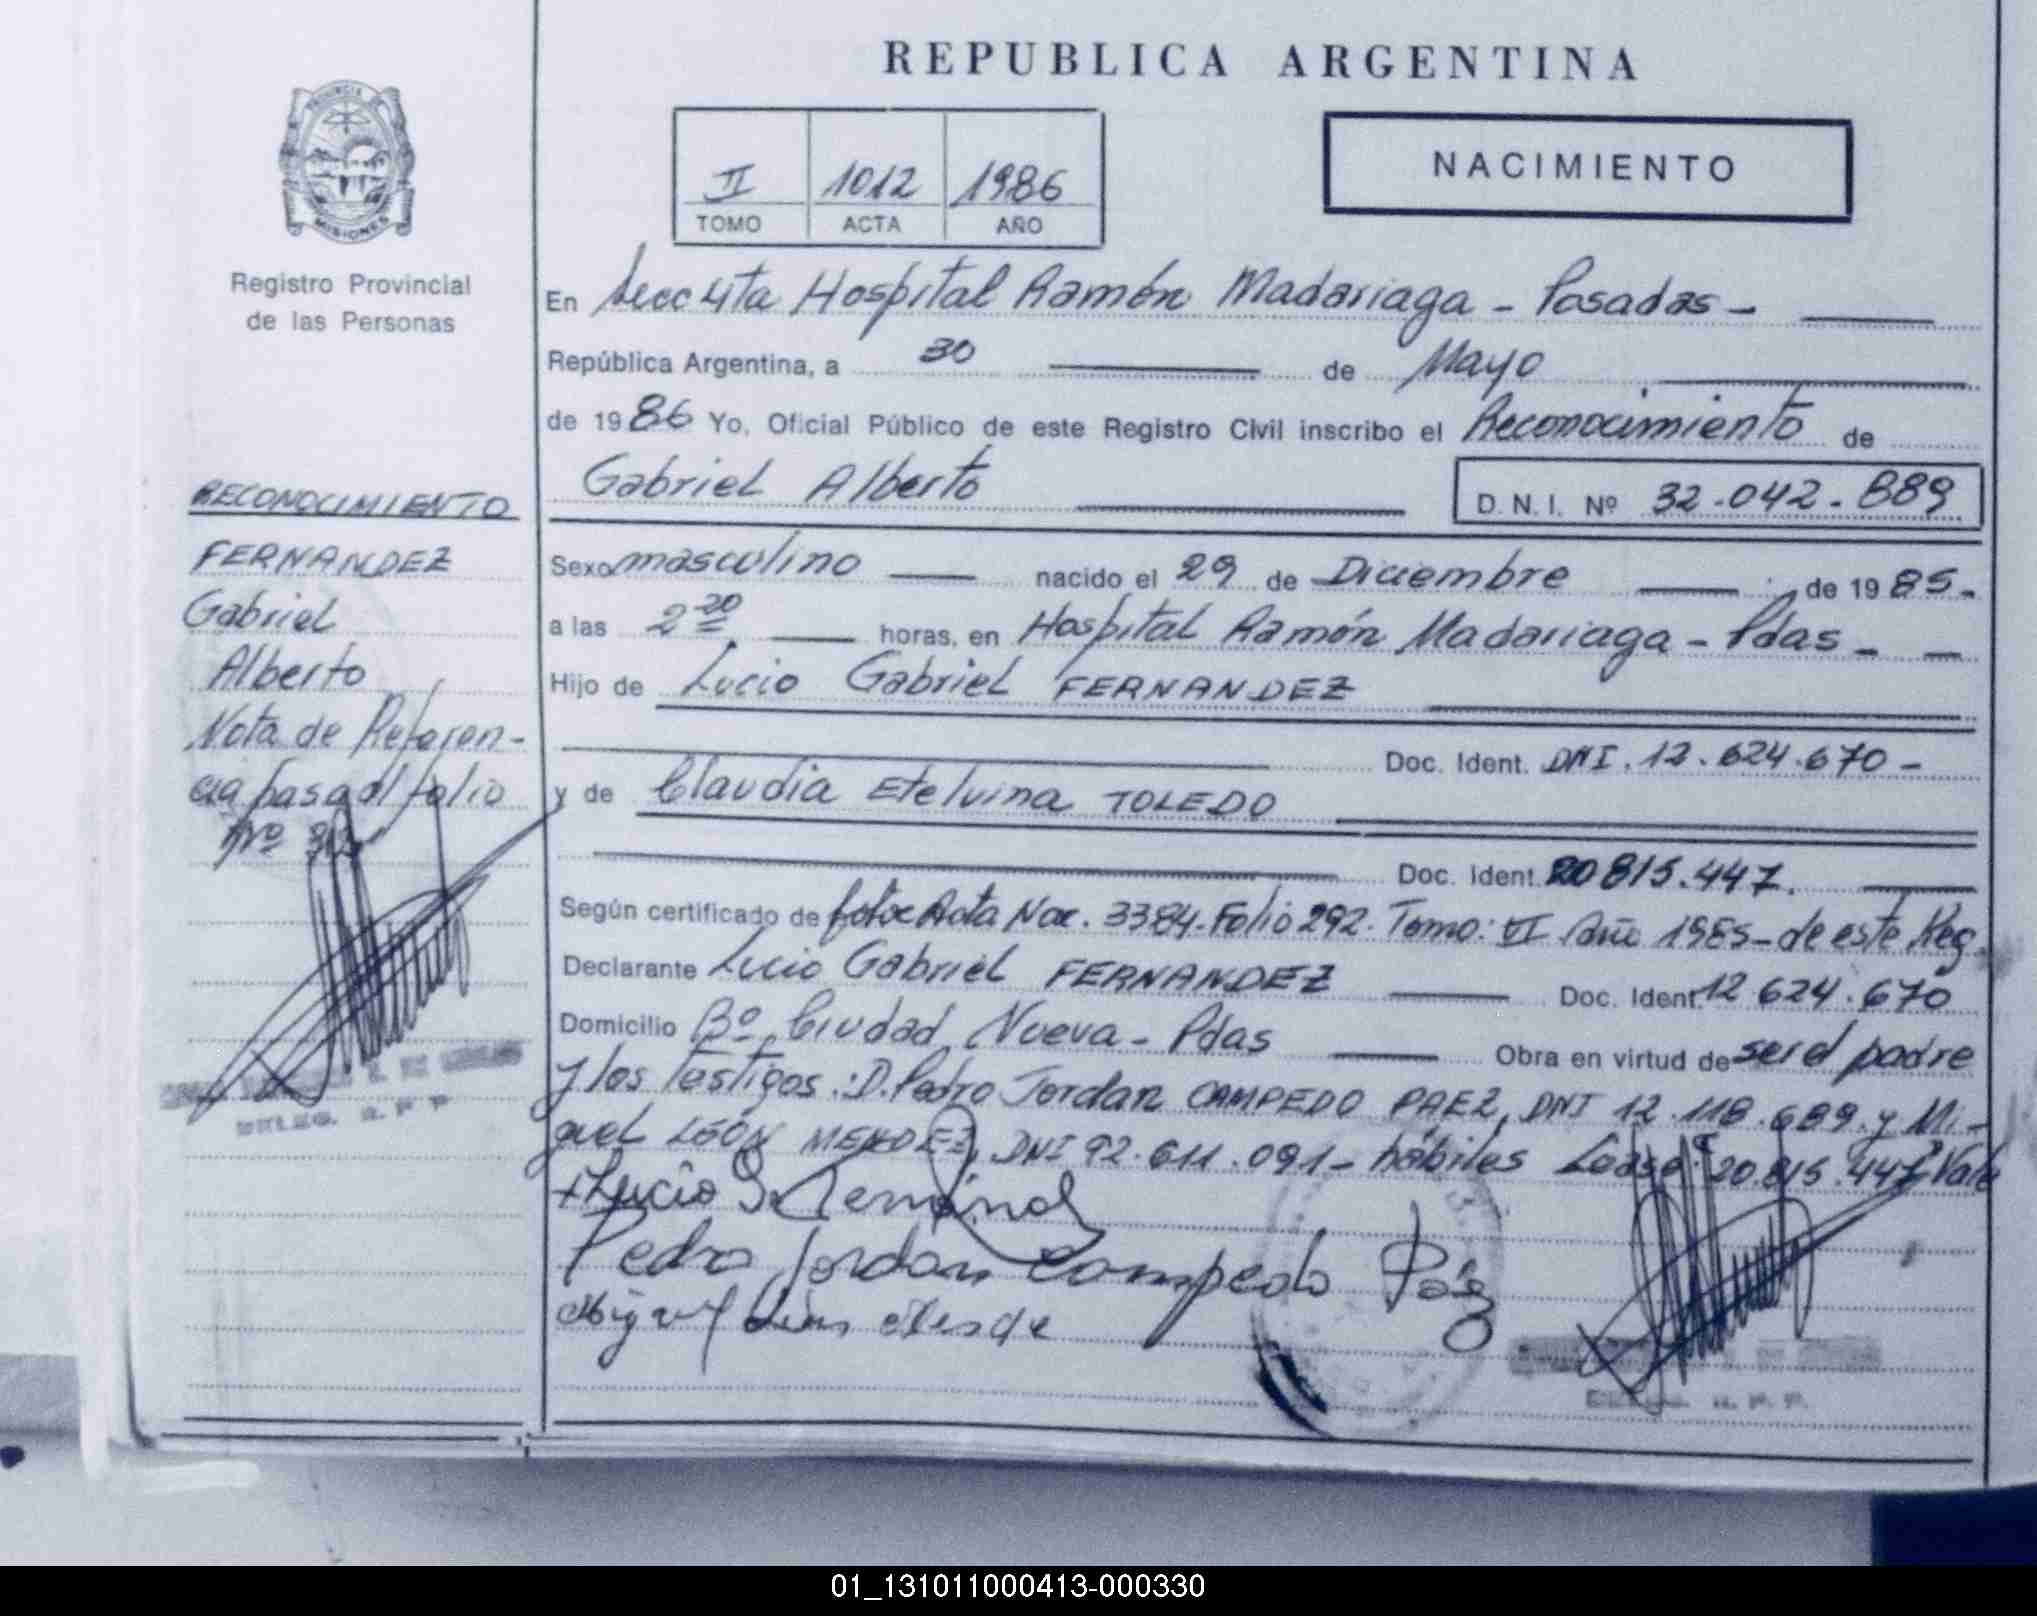 REPUBLICA ARGENTINA
PROVINCIA DE
MISIONES
Registro Provincial
de las Personas
II 1012 1986
TOMO ACTA AÑO
NACIMIENTO
En Secc 4ta Hospital Ramón Madariaga - Posadas -
República Argentina, a 30 de Mayo
de 1986 Yo, Oficial Público de este Registro Civil inscribo el Reconocimiento de
Gabriel Alberto
D. N. I. Nº 32.042.889
Sexo masculino nacido el 29 de Diciembre de 1985.
a las 2 20 horas, en Hospital Ramón Madariaga - Pdas -
Hijo de Lucio Gabriel FERNANDEZ
Doc. Ident. DNI. 12.624.670 -
y de Claudia Etelvina TOLEDO
Doc. Ident. 20 815.447.
Según certificado de Acta Nac. 3384. Folio 292. Tomo: VI Año 1985 - de este Reg.
Declarante Lucio Gabriel FERNANDEZ Doc. Ident. 12 624.670
Domicilio Bº Ciudad Nueva - Pdas Obra en virtud de ser el padre
y los testigos: D. Pedro Jordan CAMPEDO PAEZ, DNI 12.118.689. y Mi-
guel LEÓN MENDEZ, DNI 92.611.091 - hábiles Lease: 20.815.447 Vale
Lucio
Pedro Jordan Campedo Páez
RECONOCIMIENTO
FERNANDEZ
Gabriel
Alberto
Nota de Referen-
cia pasa al folio
Nº
DELEG. R. P. P.
01_131011000413-000330